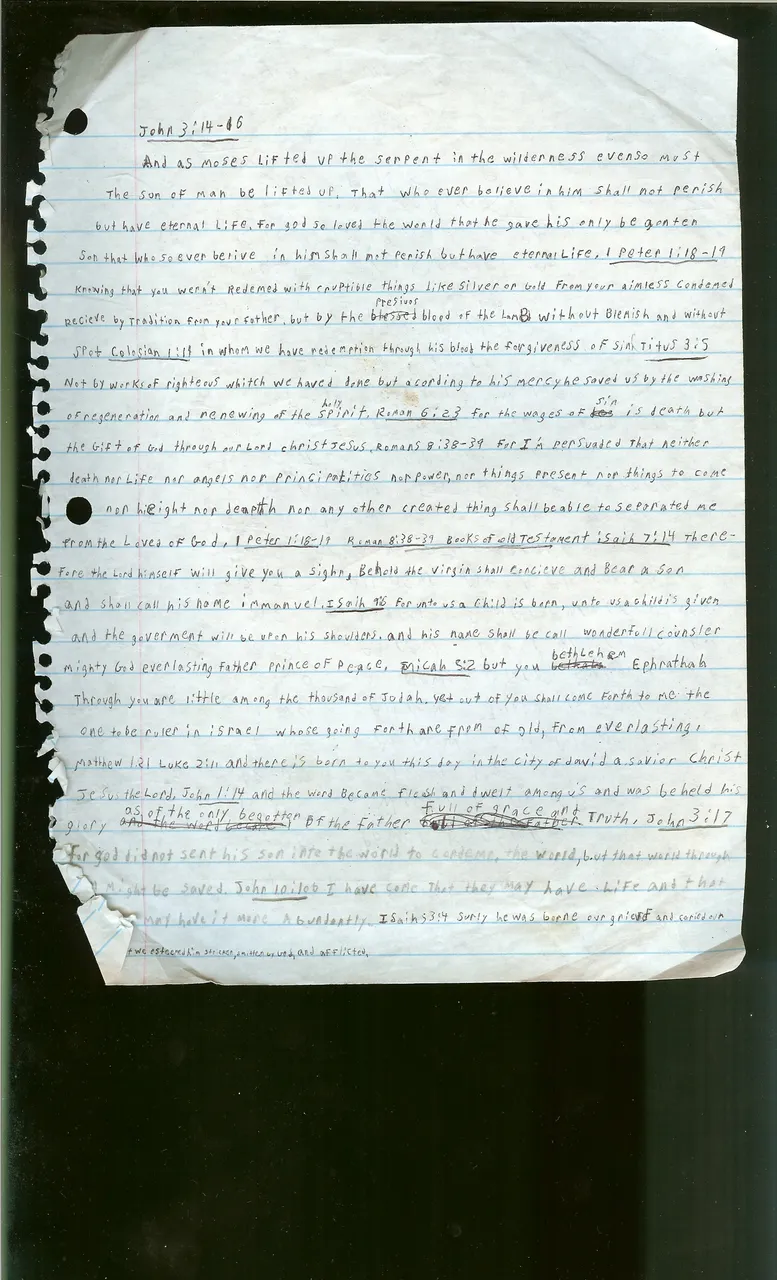 John 3:14-16
And as moses Lifted up the serpent in the wilderness evenso must
The son of man be lifted up, That who ever believe in him shall not perish
but have eternal Life, For god so loved the world that he gave his only be gonten
Son that who so ever berive in him shall not perish but have eternal Life, 1 Peter 1:18-19
Knowing that you wern't Redemed with cruptible things Like Silver or Gold From your aimless Condemed
presivos
recieve by Tradition From your father, but by the blessed blood of the Lamb without Blemish and without
spot Colosian 1:14 in whom we have redemption through his blood the forgiveness of sin, Titus 3:5
Not by works of righteous whitch we haved done but acording to his mercy he saved us by the washing
holy sin
of regeneration and renewing of the spirit, Roman 6:23 for the wages of is death but
the Gift of God through our Lord christ Jesus, Romans 8:38-39 For I'm persuaded That neither
death nor Life nor angels nor Principalities nor power, nor things present nor things to come
nor height nor deapth nor any other created thing shall beable to separated me
from the Loved of God, 1 Peter 1:18-19 Roman 8:38-39 Books of old Testament isaih 7:14 There-
fore the Lord himself will give you a sighn, Behold the virgin shall concieve and Bear a son
and shall call his name immanuel, Isaih 9:6 For unto us a child is born, unto us a child is given
and the goverment will be upon his shoulders, and his name shall be call wonderfull counsler
bethlehem
mighty God everlasting Father Prince of Peace, Micah 5:2 but you Ephrathah
Through you are little among the thousand of Judah, yet out of you shall come forth to me the
one to be ruler in israel whose going forth are from of old, from everlasting,
Matthew 1:21 Luke 2:11 and there is born to you this day in the city of david a savior Christ
Jesus the Lord, John 1:14 and the word Became flesh and dwelt among us and was beheld his
as of the only begotten full of grace and
glory and the word became Of the Father full of the Father Truth, John 3:17
For god did not sent his son into the world to condemn, the world, but that world through
Might be saved. John 10:10b I have come That they may have Life and that
may have it more Abundantly. Isaih 53:4 Surly he was borne our grief and caried our
we esteemed him stricken, smitten by God, and afflicted,